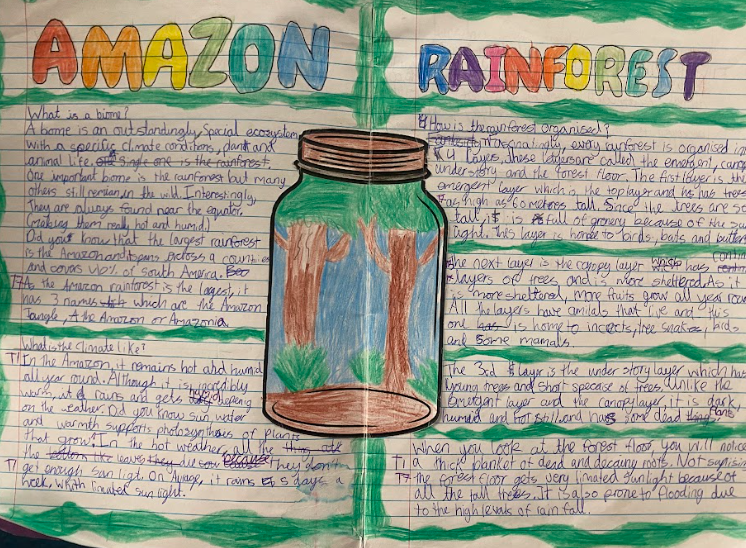 AMAZON
What is a biome?
A biome is an outstandingly, special ecosystem
with a specific climate conditions, plant and
animal life. Single one is the rainforest.
One important biome is the rainforest but many
others still remain in the wild. Interestingly,
They are always found near the equator
(making them really hot and humid.)
Did you know that the largest rainforest
is the Amazon and spans across a countries
and covers 40% of south America.
As the Amazon rainforest is the largest, it
has 3 names which are the Amazon
Jungle, the Amazon or Amazonia.
What is the climate like?
In the Amazon, it remains hot and humid
all year round. Although it is incredibly
warm, it rains and gets depening
on the weather. Did you know sun, water
and warmth supports photosyntheses of plants
that grow! In the hot weather, all the
the leaves they die because they don't
get enough sun ligt. On Avrage, it rains 5 days a
week, with limited sun light.
RAINFOREST
How is the rainforest organised?
every rainforest is organised in
4 layers, these layers are called the emergent, canopy
understory and the forest floor. The first layer is the
emergent layer which is the top layer and has trees
as high as 60 metres tall. Since the trees are so
tall, it is full of greenery because of the sun
light. This layer is home to birds, bats and
the next layer is the canopy layer which has
layers of trees and is more sheltered. As it
is more sheltered, more fruits grow all year
All the layers have amilals that live and this
one is home to incects, tree snakes, birds
and some mamals.
The 3rd layer is the under story layer which has
young trees and short specise of trees. Unlike the
emergent layer and the canopy layer, it is dark,
humid and hot still and has some dead plants
When you look at the forest floor, you will notice
a thick blanket of dead and decaying roots. Not
the forest floor gets very limated sunlight because of
all the tall trees. It is also prone to flooding due
to the high levels of rain fall.